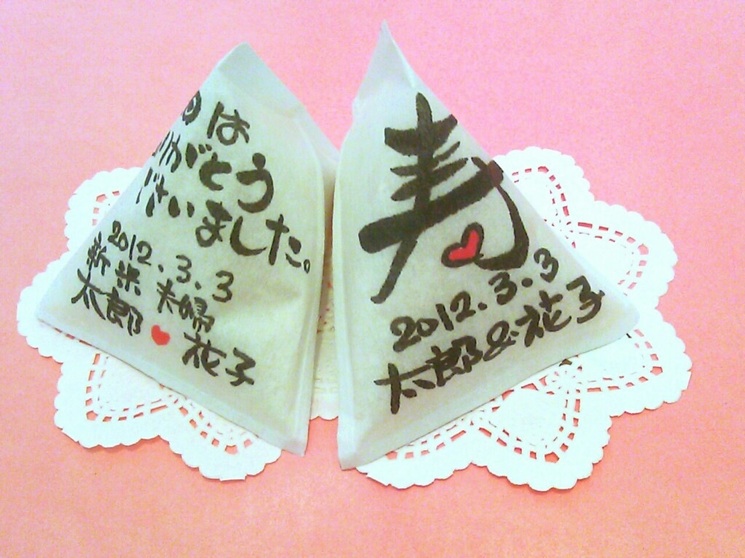 日は
りがとう
ざいました。
2012.3.3
新米夫婦
太郎♥花子
寿
2012.3.3
太郎&花子